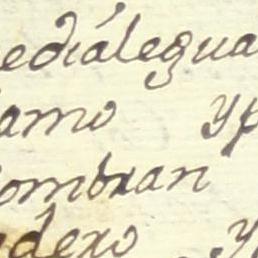 ediálegua
amo yp
ombran
dero y